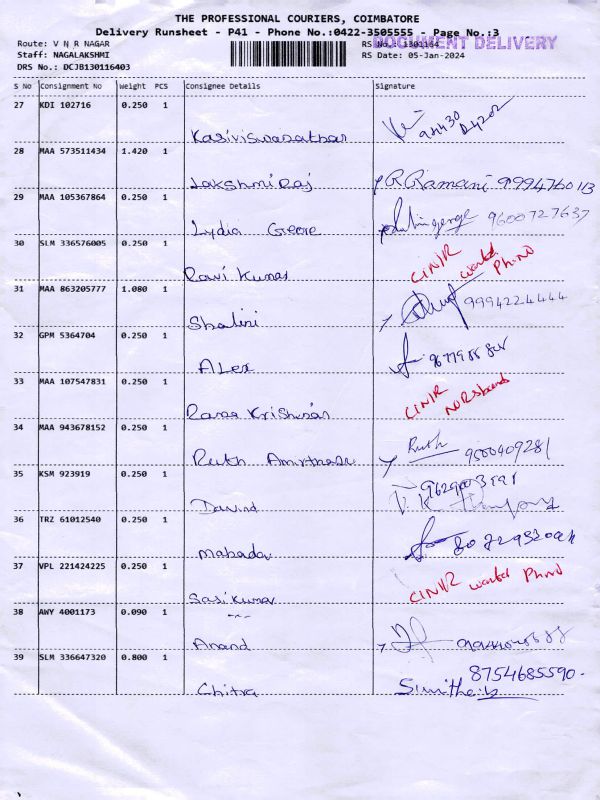 THE PROFESSIONAL COURIERS, COIMBATORE
Delivery Runsheet - P41 - Phone No.:0422-3505555 - Page No.:3
Route: V N R NAGAR RS No.: 1301164
DOCUMENT DELIVERY
Staff: NAGALAKSHMI RS Date: 05-Jan-2024
DRS No.: DCJB130116403
S No Consignment No Weight PCS Consignee Details Signature
27 KDI 102716 0.250 1
Kasiviswasathar
28 MAA 573511434 1.420 1
Lakshmi Raj R Ramani 9994760113
29 MAA 105367864 0.250 1
Lydia George 9600727637
30 SLM 336576005 0.250 1
Ravi Kumar CINIR wanted Ph.no
31 MAA 863205777 1.080 1
Shalini 9994224444
32 GPM 5364704 0.250 1
ALex
33 MAA 107547831 0.250 1
Krishnan CINIR
34 MAA 943678152 0.250 1
Ruth Ruth 9500409281
35 KSM 923919 0.250 1
David
36 TRZ 61012540 0.250 1
37 VPL 221424225 0.250 1
Sasikumar CINIR wanted Ph.no
38 AWY 4001173 0.090 1
Anand
39 SLM 336647320 0.800 1
Chitra 8754685590